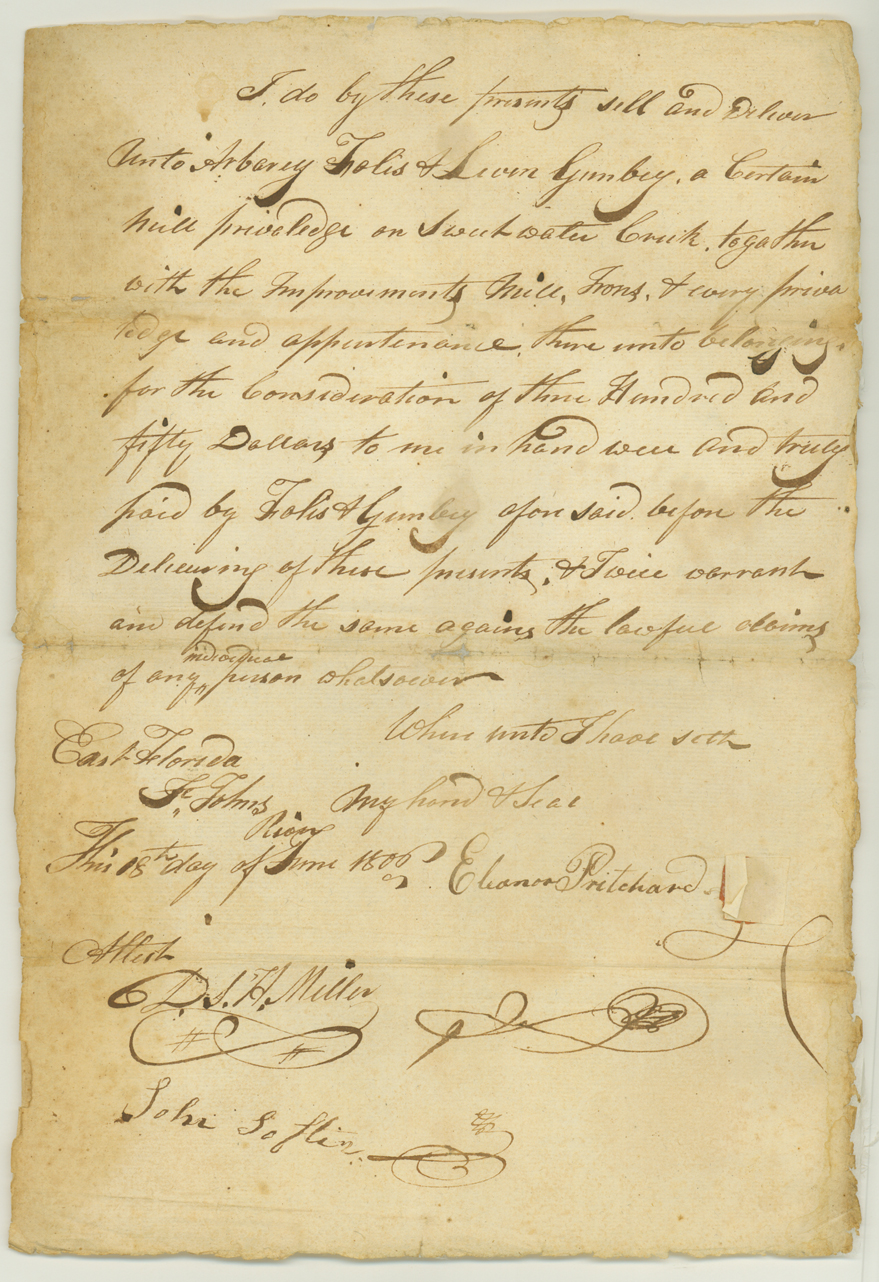 I, do by these presents sell and Deliver
Unto Arbarey Falis & Liven Gunbey, a Certain
Mill priveledge on Sweetwater Creek, togather
with the Improvements Mill, Irons, & every priva
ledge and appurtenance, there unto belonging,
for the Consideration of three Hundred and
fifty Dollars to me in hand well and truly
paid by Falis & Gunbey afore said before the
Delievring of these presents, & I will warrant
and defend the same agains the lawful claims
of any individual person whatsoever
Where unto I have seth
East Florida
St Johns my hand & Seal
River
This 18th day of June
Eleanor Pritchard
Attest
D. S. H. Miller
John Loftin